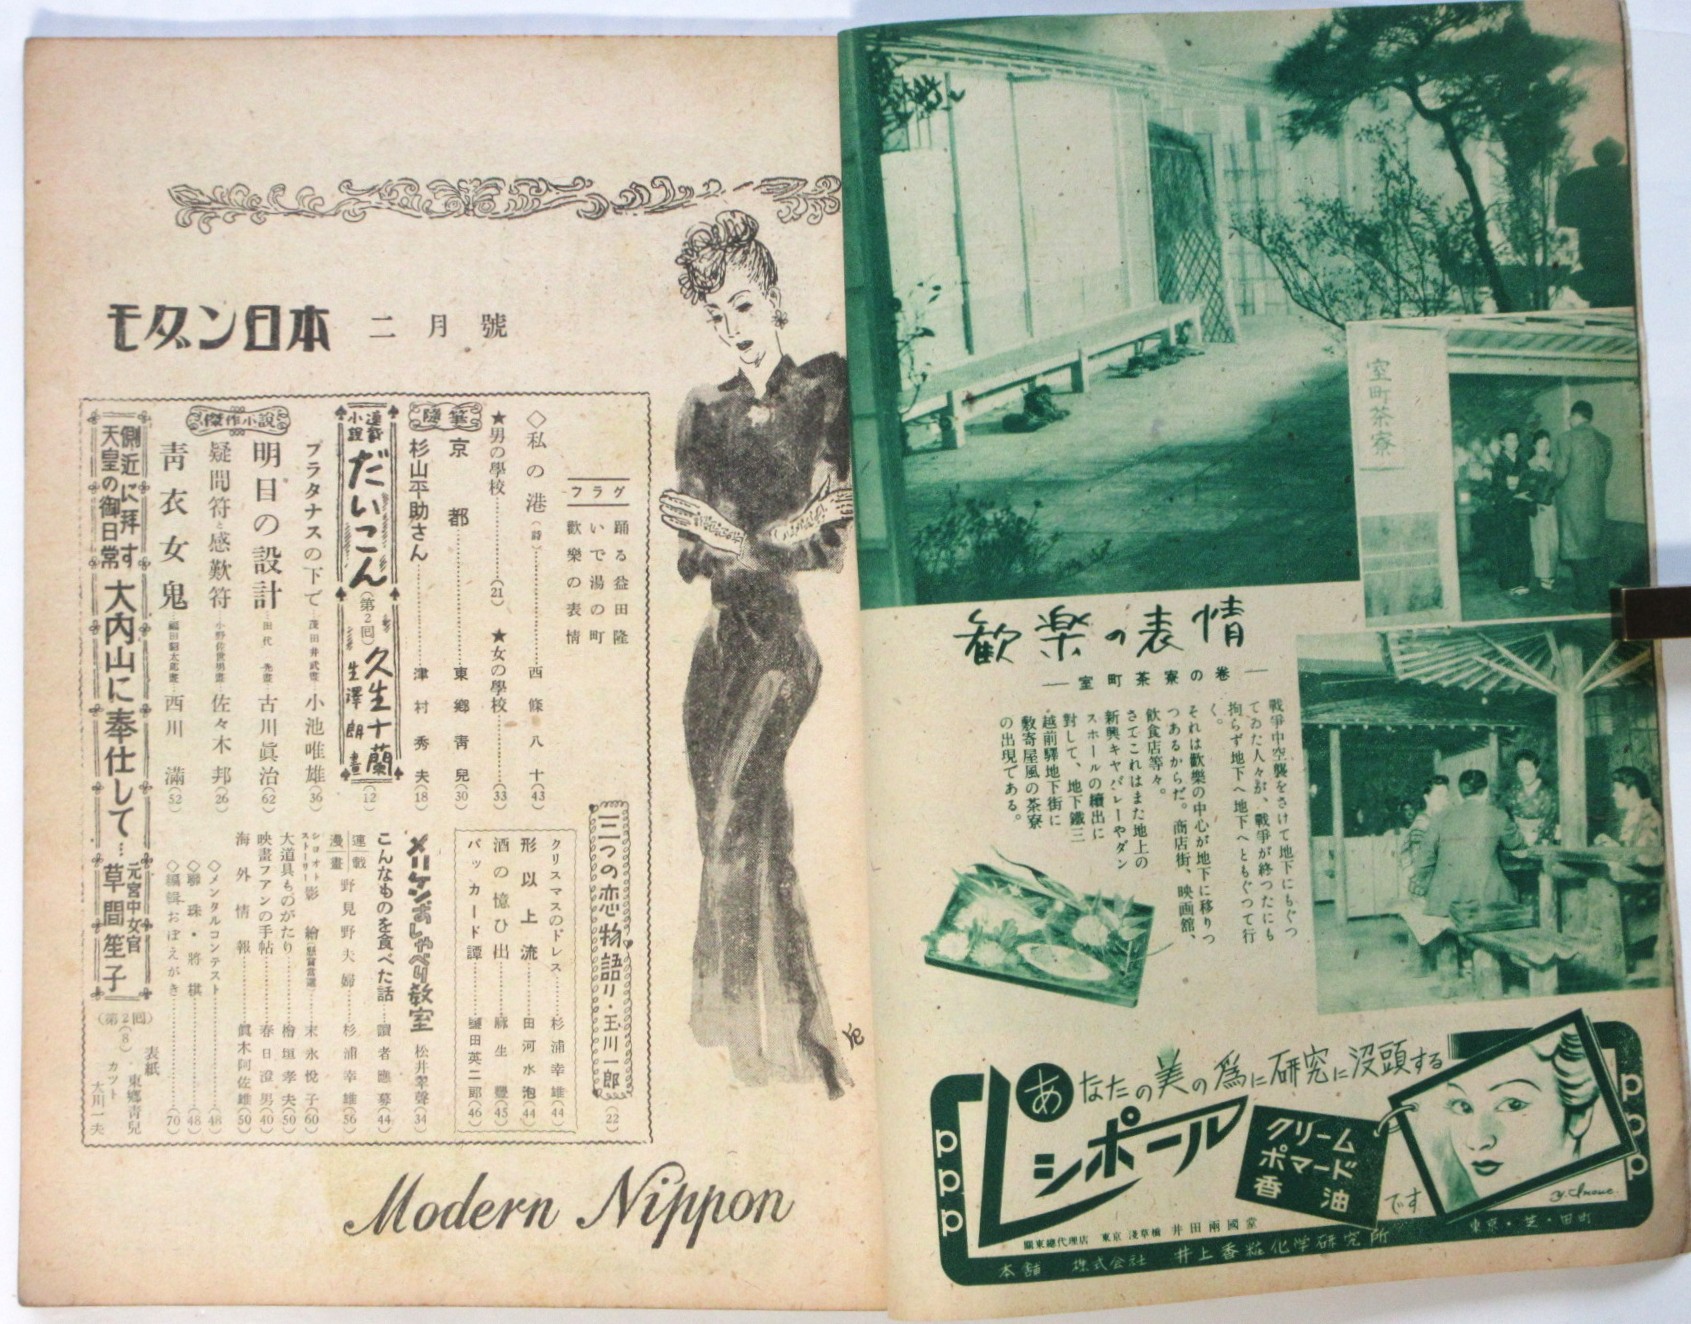 室町茶寮
歓楽の表情
― 室町茶寮の巻 ―
戦爭中空襲をさけて地下にもぐつ
てゐた人々が、戰爭が終つたにも
拘らず地下へ地下へともぐつて行
く。
それは歡樂の中心が地下に移りつ
つあるからだ。商店街、映画館、
飲食店等々。
さてこれはまた地上の
新興キヤバレーやダン
スホールの續出に
對して、地下鐵三
越前驛地下街に
數寄屋風の茶寮
の出現である。
あなたの美の爲に研究に没頭する
レシポール
クリーム
ポマード
香油
です
ppp
ppp
關東總代理店 東京 淺草橋 井田兩國堂
本舗 株式会社 井上香粧化学研究所
東京・芝・田町
モダン日本 二月號
グラフ
踊る益田隆
いで湯の町
歡樂の表情
◇私の港(詩)……西條八十(43)
★男の學校……(21) ★女の學校……(33)
隨筆
京都……東郷靑兒(30)
杉山平助さん……津村秀夫(18)
連載小説
だいこん(第2回) 久生十蘭 生澤朗畫(12)
プラタナスの下で 茂田井武畫 小池唯雄(36)
傑作小説
明日の設計 田代光畫 古川眞治(62)
疑問符と感歎符 小野佐世男畫 佐々木邦(26)
靑衣女鬼 西川滿(52)
側近に拜す
天皇の御日常
大内山に奉仕して… 元宮中女官 草間笙子(第2回)(8)
三つの恋物語り・玉川一郎(22)
クリスマスのドレス……杉浦幸雄(44)
形以上流……田河水泡(44)
酒の憶ひ出……麻生豊(45)
パッカード譚……樋田英二郎(46)
メリケンおしゃべり教室 松井翠聲(34)
こんなものを食べた話……讀者應募(44)
連載漫畫 野見野夫婦……杉浦幸雄(56)
ショオトストーリー 影繪……末永悅子(60)
大道具ものがたり……檜垣孝夫(50)
映畫フアンの手帖……春日澄男(40)
海外情報……眞木阿佐雄(50)
◇メンタルコンテスト……(48)
◇聯珠・將棋……(48)
◇編輯おぼえがき……(70)
表紙 東郷靑兒
カツト 大川一夫
Modern Nippon